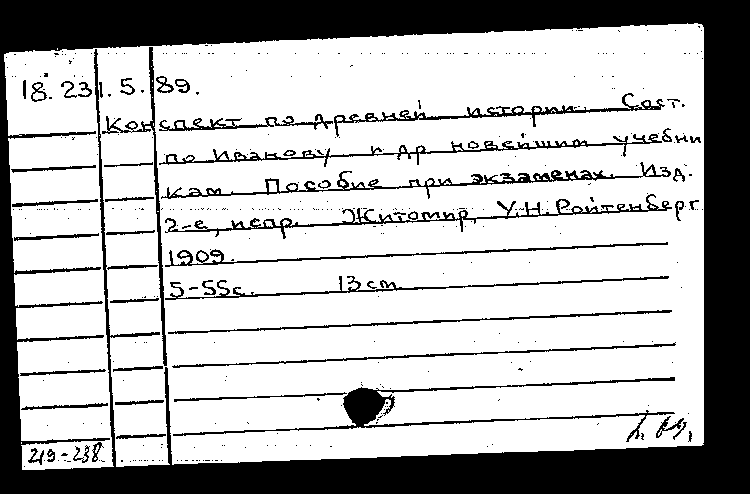 18. 231. 5. 89.
Конспект по древней истории. Сост.
по Иванову и др новейшим учебни
кам. Пособие при экзаменах. Изд.
2-е, испр. Житомир, У.Н. Ройтенберг
1909.
5-55с. 13cm
219-238